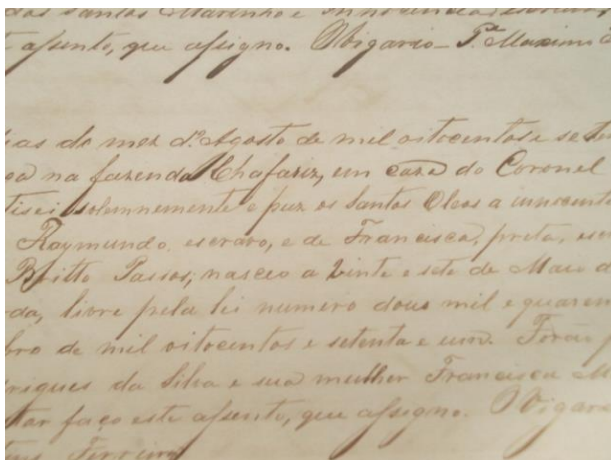 dos Santos Marinho e
assento, que assigno. O Vigario - Pe. Maximo
ias do mez d'Agosto de mil oitocentos e seten
na fazenda Chafariz, em caza do Coronel
tisei solemnemente e puz os Santos Oleos a innocente
Raymundo, escravo, e de Francisca, preta, escr
Britto Passos; nasceo a vinte e sete de Maio d
da, livre pela lei numero dous mil e quaren
bro de mil oitocentos e setenta e um. Forão p
rigues da Silva e sua mulher Francisca M
tar faço este assento, que assigno. O Vigar
Ferreira